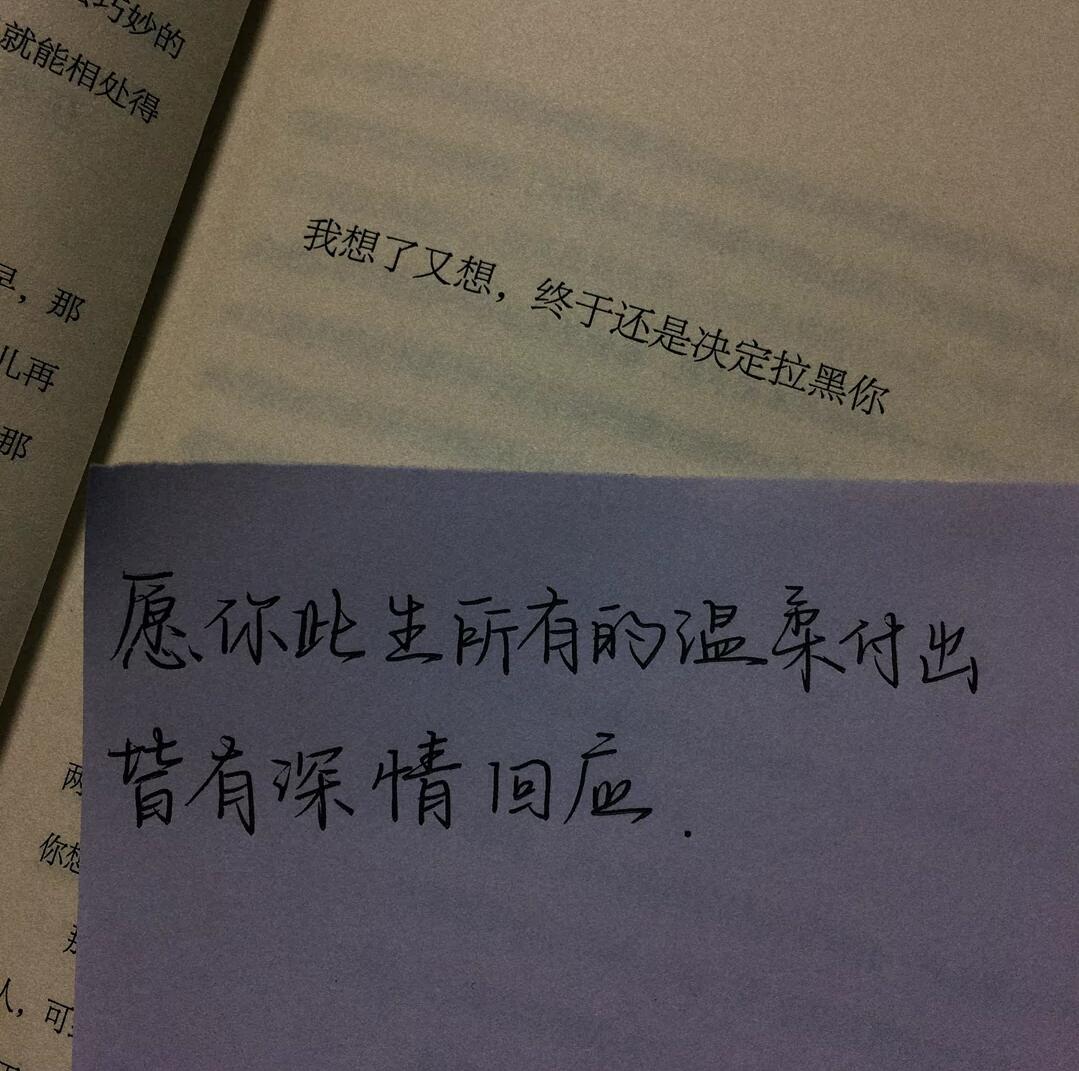 巧妙的
就能相处得
早，那
儿再
那
我想了又想，终于还是决定拉黑你
愿你此生所有的温柔付出
皆有深情回应.
两
你想
那
人，可